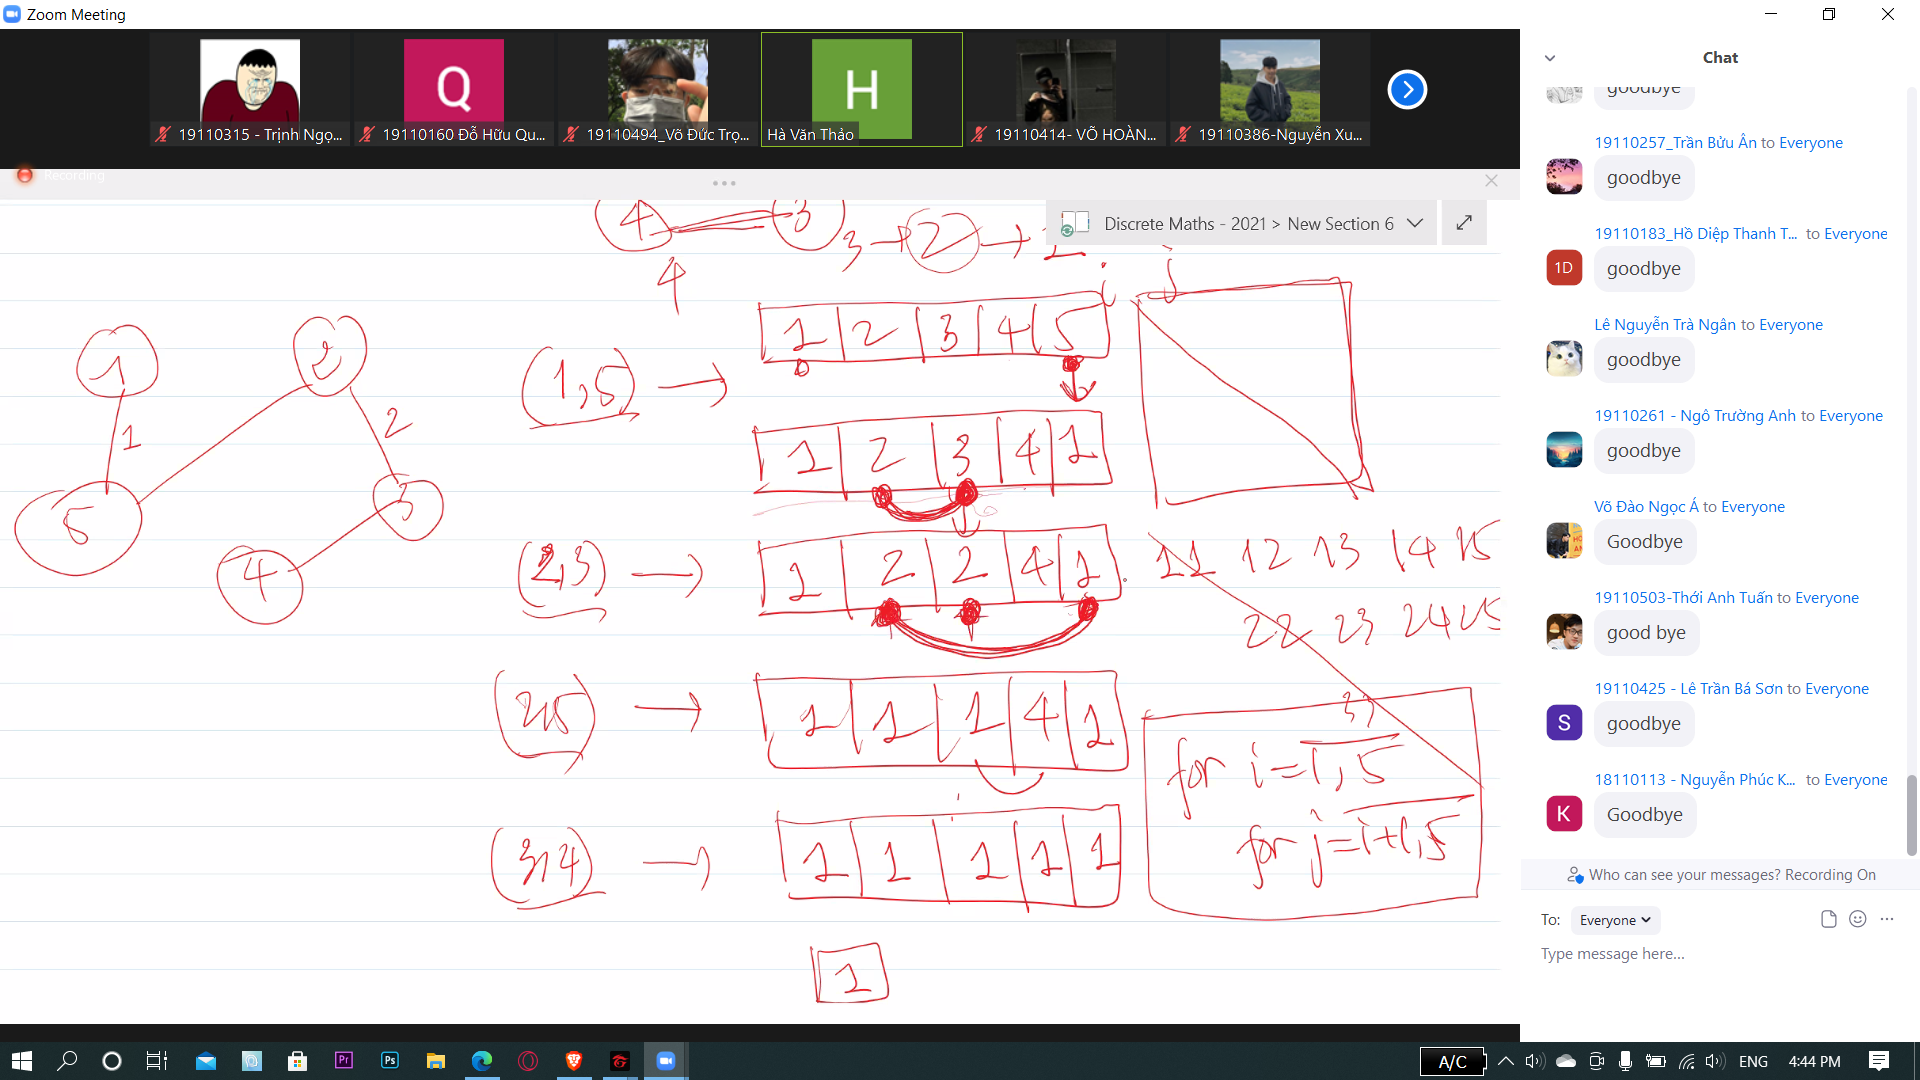 Zoom Meeting
19110315 - Trịnh Ngọ...
Q
19110160 Đỗ Hữu Qu...
19110494_Võ Đức Trọ...
H
Hà Văn Thảo
19110414- VÕ HOÀN...
19110386-Nguyễn Xu...
Recording
Discrete Maths - 2021 > New Section 6
4 3
3 → 2 → 1
4
i j
1 2 3 4 5
(1,5) →
1 2 3 4 1
(2,3) →
1 2 2 4 1
(2,5) →
1 1 1 4 1
(3,4) →
1 1 1 1 1
1
1
2
1
2
5
3
4
11 12 13 14 15
22 23 24 25
33
for i = 1,5
for j = i+1,5
Chat
goodbye
19110257_Trần Bửu Ân to Everyone
goodbye
19110183_Hồ Diệp Thanh T... to Everyone
1D
goodbye
Lê Nguyễn Trà Ngân to Everyone
goodbye
19110261 - Ngô Trường Anh to Everyone
goodbye
Võ Đào Ngọc Á to Everyone
Goodbye
19110503-Thới Anh Tuấn to Everyone
good bye
19110425 - Lê Trần Bá Sơn to Everyone
S
goodbye
18110113 - Nguyễn Phúc K... to Everyone
K
Goodbye
Who can see your messages? Recording On
To: Everyone
Type message here...
Pr
Ps
A/C
ENG
4:44 PM